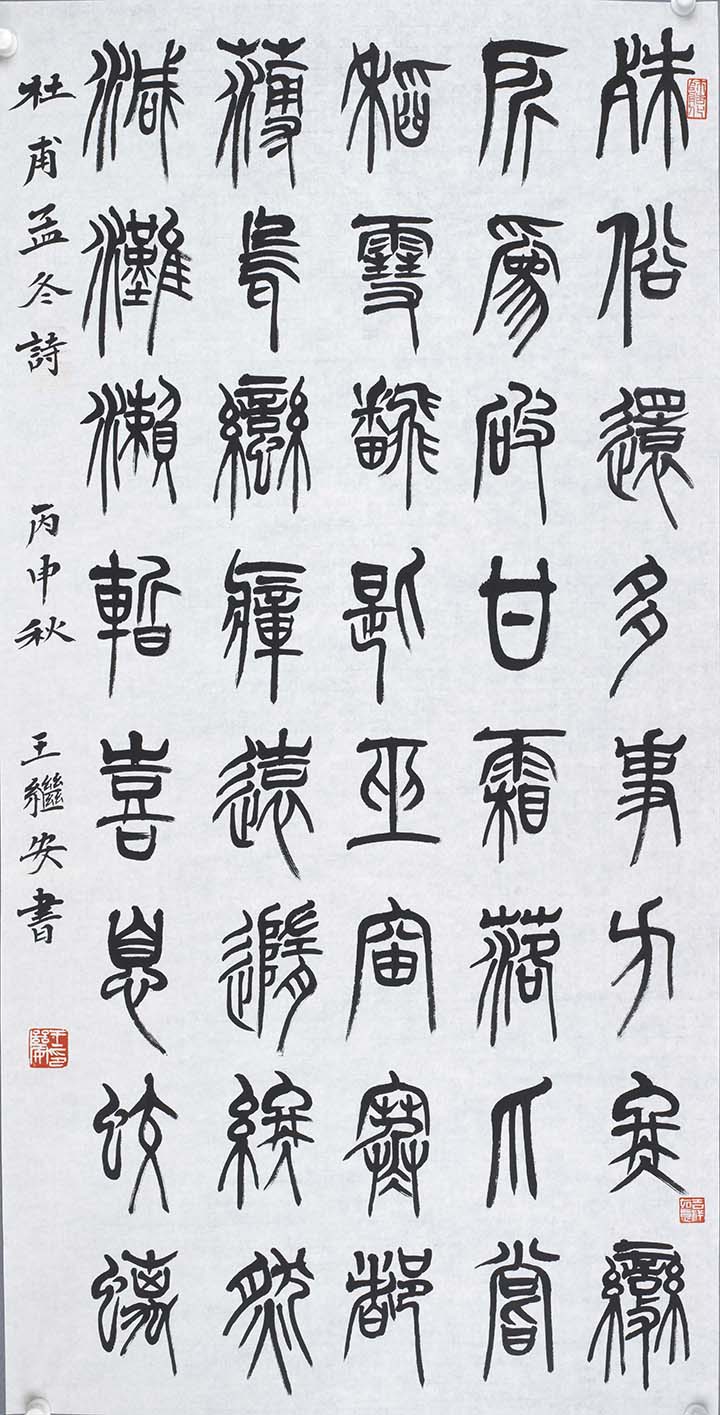 殊俗還多事方冬變
所爲破甘霜落爪嘗
稻雪飜匙巫岫寒都
薄烏蠻瘴遠隨終然
減灘瀨暫喜息蛟螭
杜甫孟冬詩 丙申秋 王繼安書